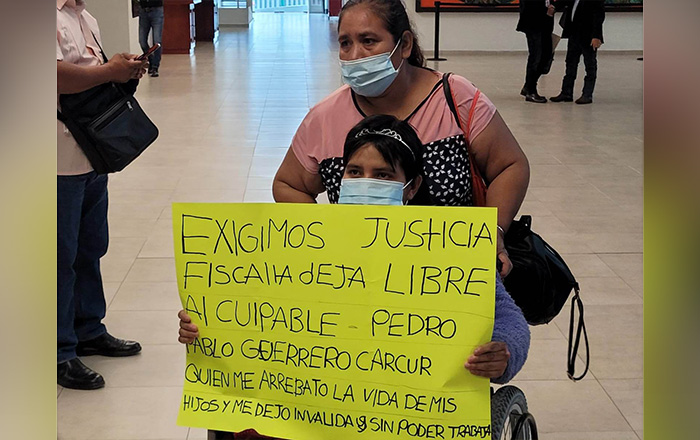 EXIGIMOS JUSTICIA
FISCALIA dEJA LIBRE
Al CULPABLE - PEDRO
PABLO GUERRERO CARCUR
QUIEN ME ARREBATO LA VIDA DE MIS
HIJOS Y ME DEJO INVALIDA Y SIN PODER TRABAJA